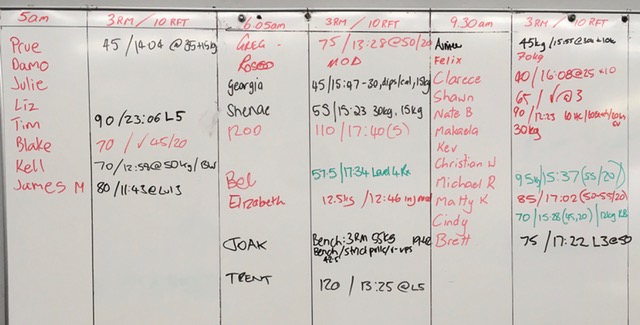 5am 3RM / 10 RFT 6:05am 3RM / 10 RFT 9.30am 3RM / 10 RFT
Prue 45 / 14:04 @ 35+15kg
Damo
Julie
Liz
Tim 90 / 23:06 L5
Blake 70 / √ 45/20
Kell 70 / 12:59 @ 50kg / BW
James M 80 / 11:43 @ L13
GREG 75 / 13:28 @ 50/20
MOD
Georgia 45 / 15:47 - 30, dips/cal, 15kg
Shenae 55 / 15:23 30kg, 15kg
ROD 110 / 17:40 (5)
Bel 57.5 / 17:34 Level 4 Rx
Elizabeth 12.5kg / 12:46
JOAK Bench: 3RM 55kg
Bench/strict pulls/v-ups
TRENT 120 / 13:25 @ L5
45kg /
Felix 70kg
Clarece 40 / 16:08 @ 25 + 10
Shawn 65 / √ @ 3
Nate B 90 / 12:23
Makaela 30kg
Kev
Christian W
Michael R 95kg / 15:37 (55/20)
Matty K 85 / 17:02 (50-55/20)
Cindy 70 / 15:28 (45,20) / 12kg KB
Brett 75 / 17:22 L3 @ 50